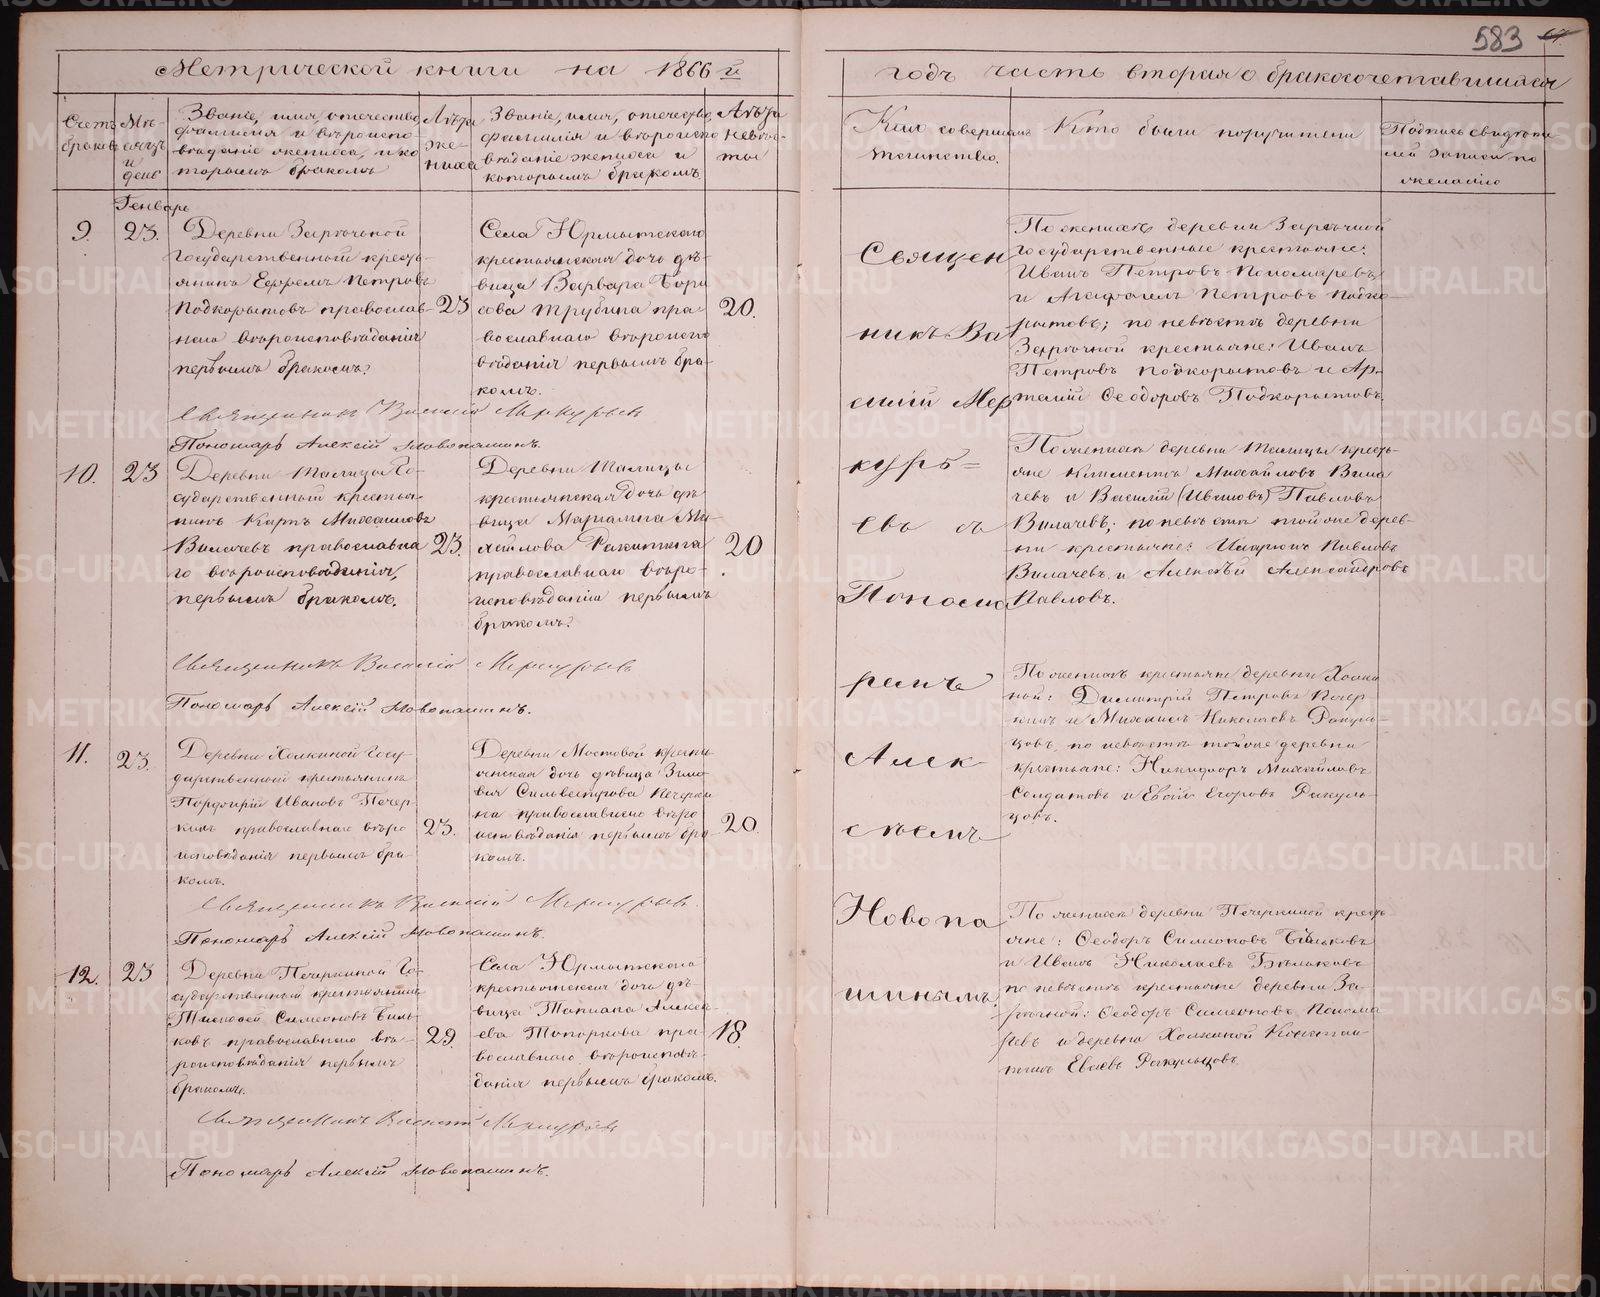 583
Метрической книги на 1866 й
годъ часть вторая о бракосочетавшихся
Счетъ
браковъ
Мѣ-
сяцъ
и
день
Званіе, имя, отечество,
фамилія и вѣроиспо-
вѣданіе жениха, и ко
торымъ бракомъ
Лѣта
же-
ниха
Званіе, имя, отечество,
фамилія и вѣроиспо
вѣданіе невѣсты и
которымъ бракомъ
Лѣта
невѣс-
ты
Кто совершалъ
таинство.
Кто были поручители
Подпись свидѣте
лей записи по
желанію
Генварь
9.
23.
Деревни Заречной
государственный кресть-
янинъ Ефремъ Петровъ
Подкорытовъ православ-
наго вѣроисповѣданія
первымъ бракомъ.
23
Села Юрмытскаго
крестьянская дочь дѣ-
вица Варвара Бори
сова Трубина пра-
вославнаго вѣроиспо
вѣданія первымъ бра-
комъ.
20.
Священникъ Василій Меркурьевъ
Пономарь Алексій Новопашинъ.
По женихѣ деревни Заречной
государственные крестьяне:
Иванъ Петровъ Пономаревъ
и Агафонъ Петровъ Подко-
рытовъ; по невѣстѣ деревни
Заречной крестьяне: Иванъ
Петровъ Подкорытовъ и Ар-
темій Ѳеодоровъ Подкорытовъ.
10.
23
Деревни Талицы Го-
сударственный крестья-
нинъ Карпъ Михаиловъ
Вилачевъ православна
го вѣроисповѣданія,
первымъ бракомъ.
23.
Деревни Талицы
крестьянская дочь дѣ-
вица Маріамна Ми-
хайлова Ракитина
православнаго вѣро-
исповѣданія первымъ
бракомъ.
20
Священникъ Василій Меркурьевъ
Пономарь Алексій Новопашинъ.
По женихѣ деревни Талицы кресть-
яне Климентъ Михайловъ Вила
чевъ и Василій (Ивановъ) Павловъ
Вилачевъ; по невѣстѣ тойже дерев-
ни крестьяне: Иларіонъ Павловъ
Вилачевъ и Алексѣй Александровъ
Павловъ.
11.
23.
Деревни Холкиной Госу-
дарственный крестьянинъ
Порфирій Ивановъ Печер-
кинъ православнаго вѣро
исповѣданія первымъ бра-
комъ.
23.
Деревни Мостовой кресть
янская дочь дѣвица Зино
вія Сильвестрова Печерки
на православнаго вѣро
исповѣданія первымъ бра-
комъ.
20.
Священникъ Василій Меркурьевъ.
Пономарь Алексій Новопашинъ.
По женихѣ крестьяне деревни Холки
ной: Димитрій Петровъ Печер
кинъ и Михаилъ Николаевъ Ракуль
цовъ, по невѣстѣ тойже деревни
крестьяне: Никифоръ Михайловъ
Солдатовъ и Егоровъ Ракуль-
цовъ.
12.
23
Деревни Печеркиной Го-
сударственный крестьянинъ
Тимофей Симеоновъ Бѣль-
ковъ православнаго вѣ-
роисповѣданія первымъ
бракомъ.
29.
Села Юрмытскаго
крестьянская дочь дѣ-
вица Татіана Алексѣ-
ева Топоркова пра-
вославнаго вѣроисповѣ-
данія первымъ бракомъ.
18.
Священникъ Василій Меркурьевъ
Пономарь Алексій Новопашинъ.
По женихѣ деревни Печеркиной кресть
яне: Ѳеодоръ Симеоновъ Бѣльковъ
и Иванъ Николаевъ Бѣльковъ
по невѣстѣ крестьяне деревни За-
речной: Ѳеодоръ Симеоновъ Понома
ревъ и деревни Холкиной Констан
тинъ Ракульцовъ.
Священ
никъ Ва
силій Мер
курь=
евъ съ
Понома
ремъ
Алек
сѣемъ
Новопа
шинымъ
METRIKI.GASO-URAL.RU